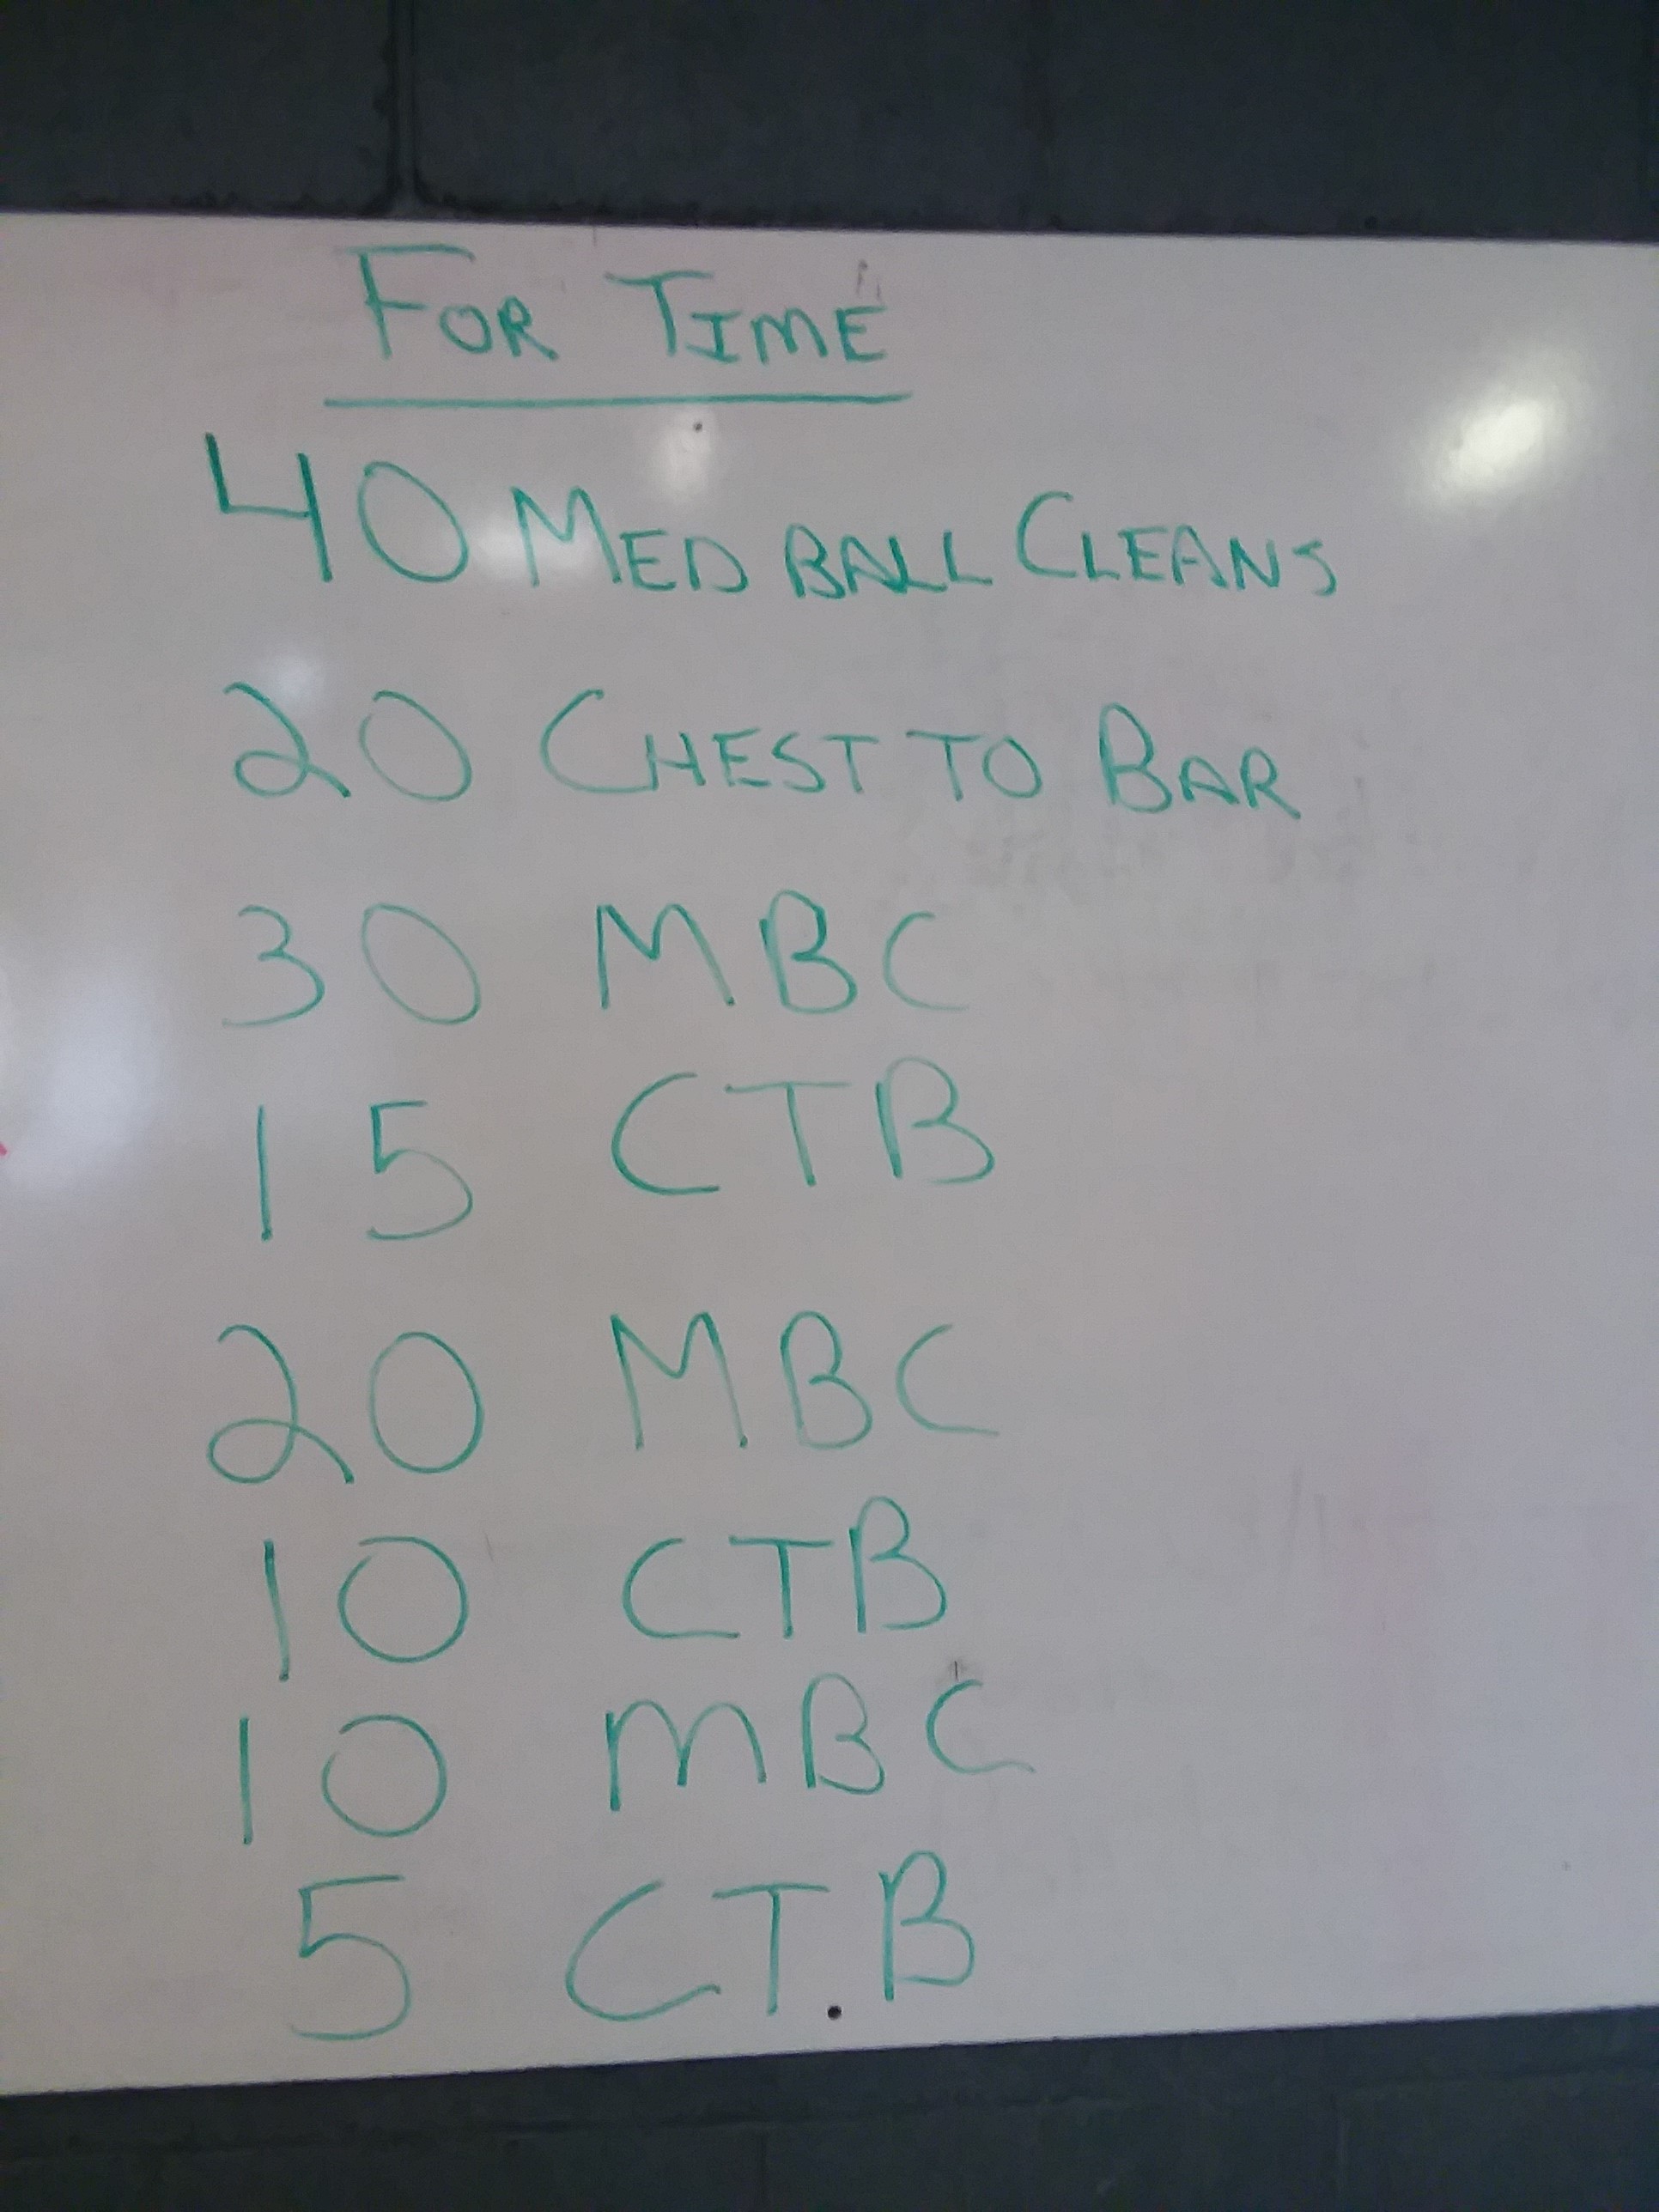 FOR TIME
40 MED BALL CLEANS
20 CHEST TO BAR
30 MBC
15 CTB
20 MBC
10 CTB
10 MBC
5 CTB